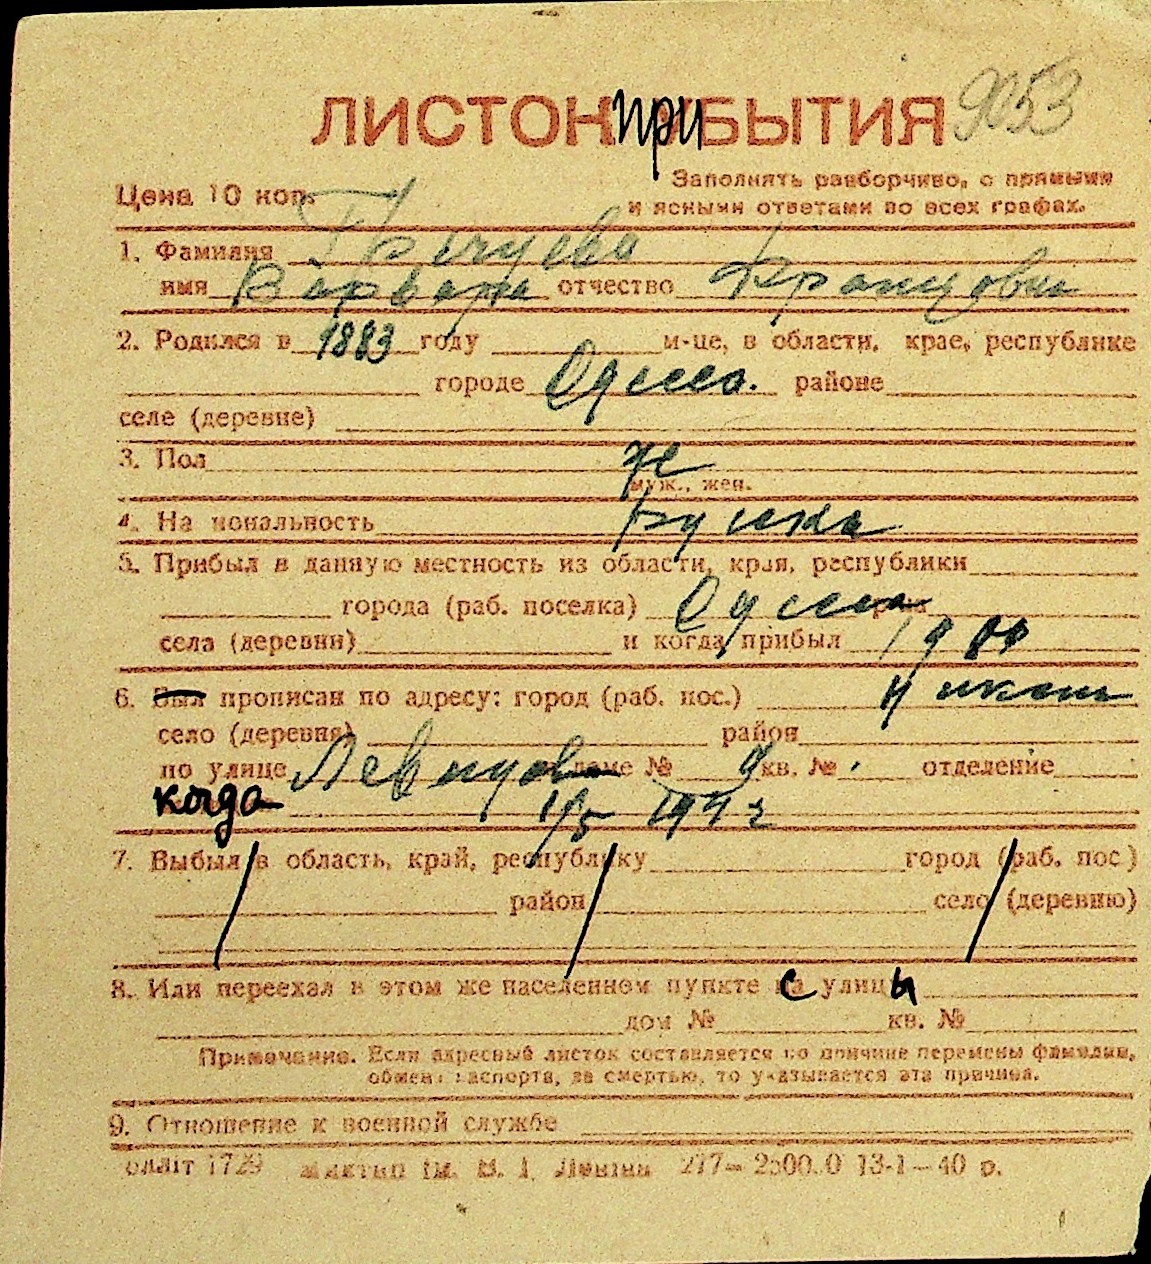 ЛИСТОК при БЫТИЯ 9053
Цена 10 коп.
Заполнять разборчиво, с прямыми
и ясными ответами во всех графах.
1. Фамилия
имя Варвара отчество Францовна
2. Родился в 1883 году м-це, в области, крае, республике
городе Одесса. районе
селе (деревне)
3. Пол же
муж., жен.
4. На иональность Русска
5. Прибыл в данную местность из области, края, республики
города (раб. поселка) Одесса рай
села (деревни) и когда прибыл 1900
6. Был прописан по адресу: город (раб. пос.)
село (деревня) район
по улице доме № 9 кв. № . отделение
когда 1/5 1942
7. Выбыл в область, край, республику город (раб. пос)
район село (деревню)
8. Или переехал в этом же населенном пункте с улицы
дом № кв. №
Примечание. Если адресный листок составляется по причине перемены фамилии,
обмен паспорта, за смертью, то указывается эта причина.
9. Отношение к военной службе
1729 им. В. І. Леніна 277— 2500.0 13-1—40 р.